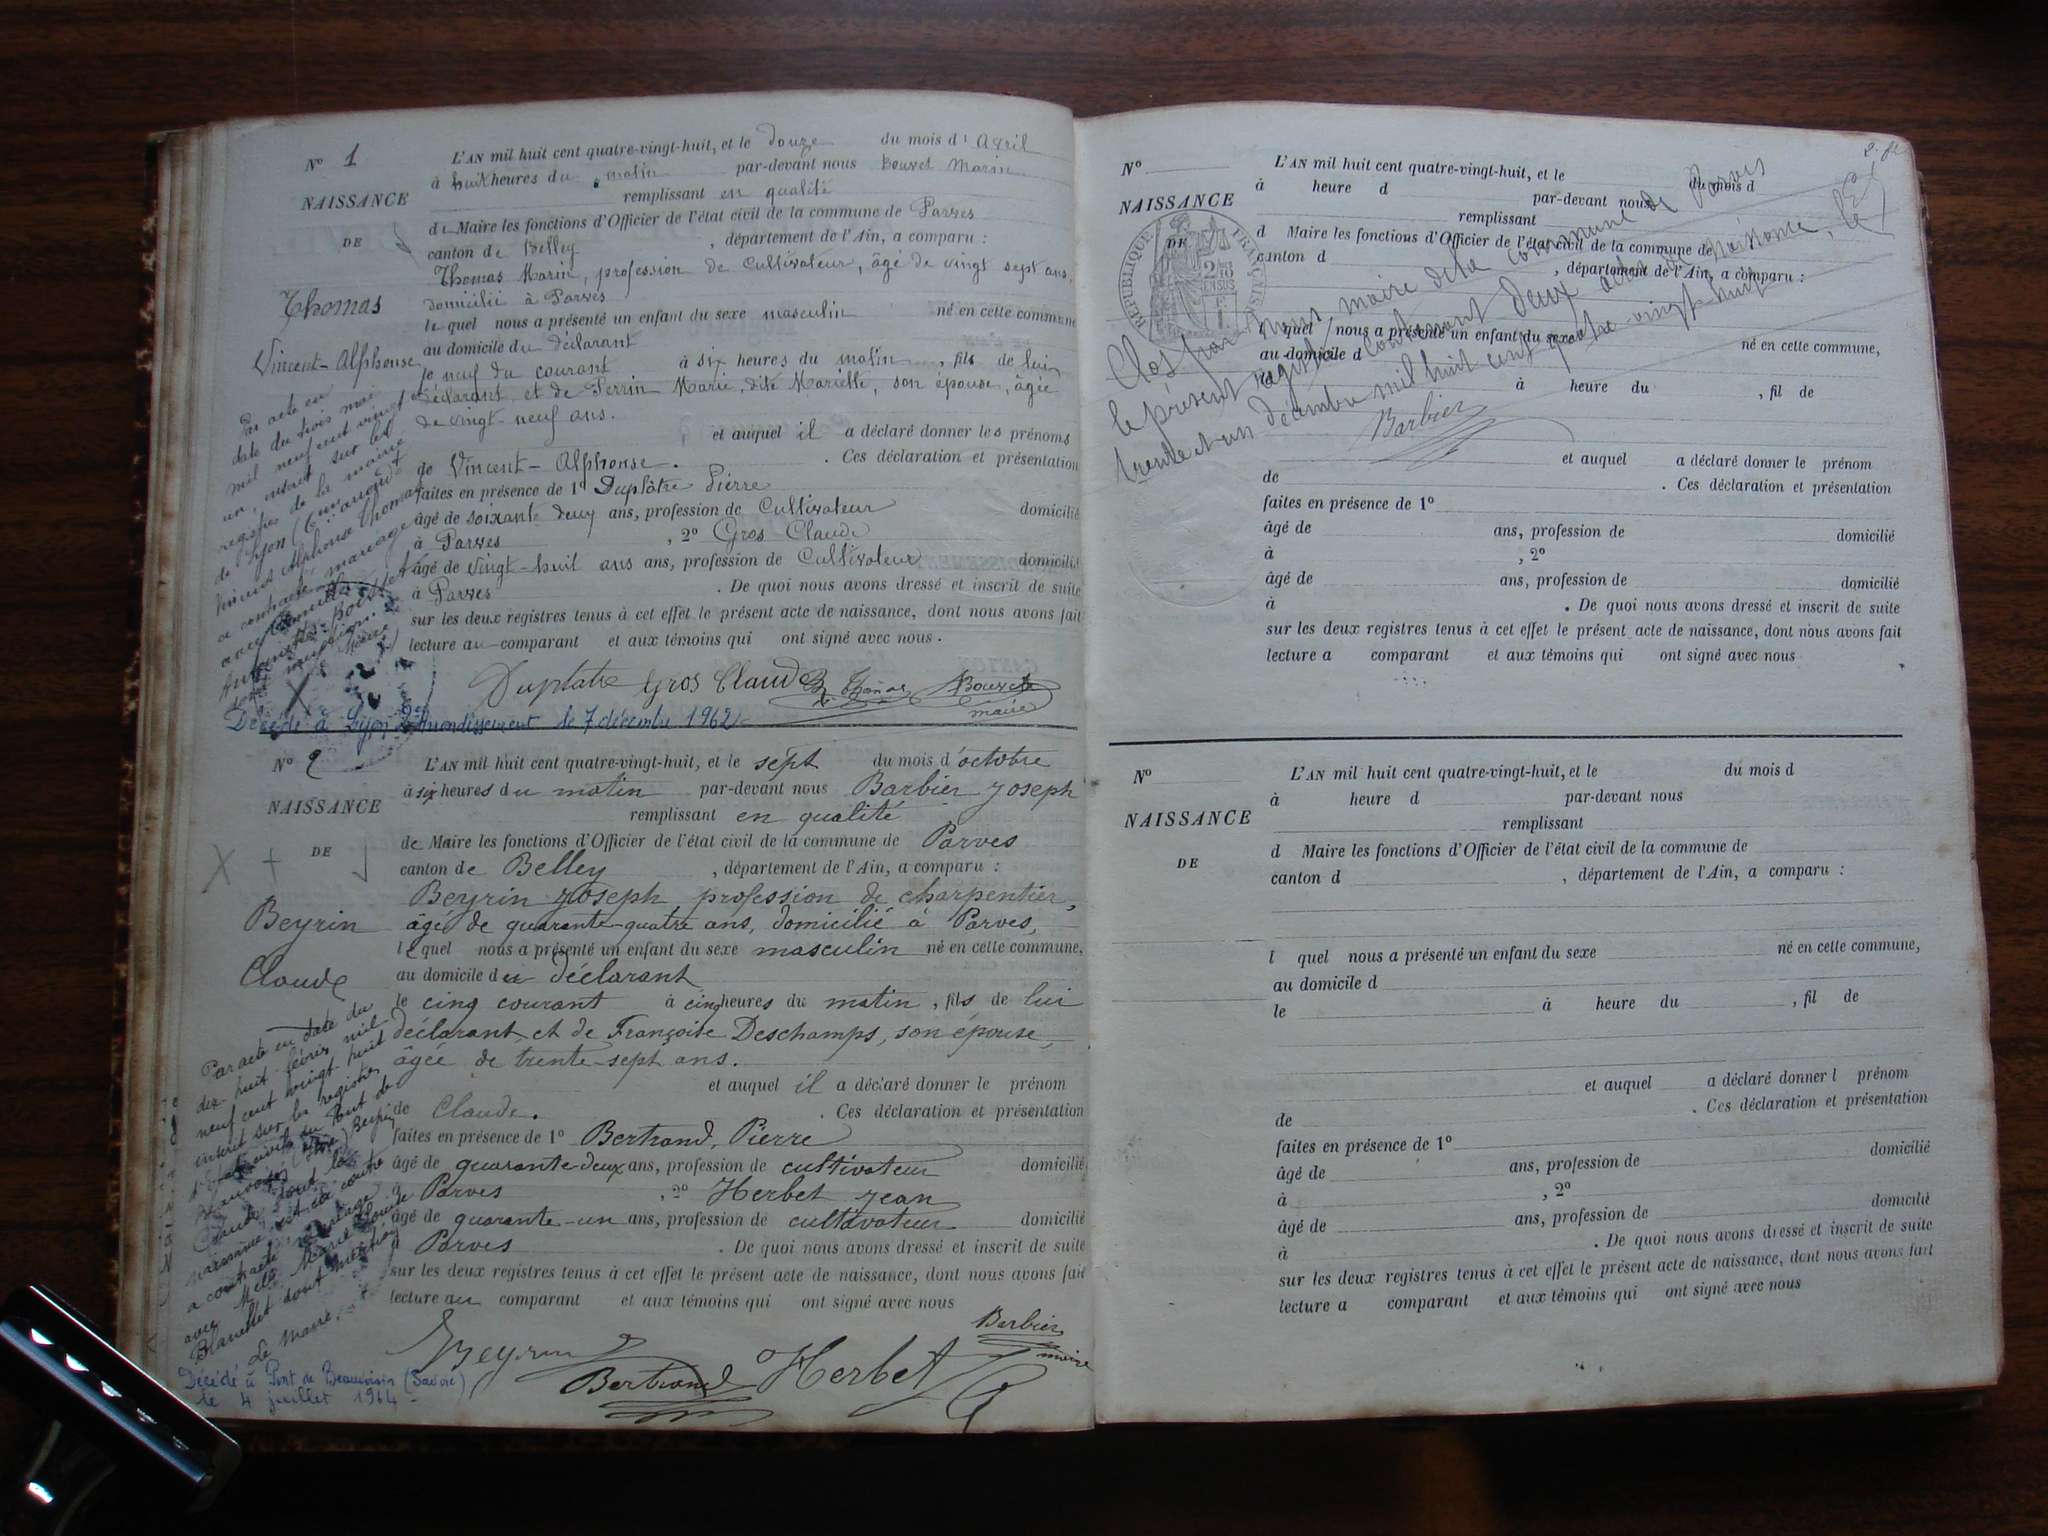 N° 1
NAISSANCE
DE
Thomas
Vincent-Alphonse
L'AN mil huit cent quatre-vingt-huit, et le douze du mois d'Avril
à huit heures du matin par-devant nous Bouvet Marin
remplissant en qualité
de Maire les fonctions d'Officier de l'état civil de la commune de Parves
canton de Belley, département de l'Ain, a comparu :
Thomas Marin, profession de Cultivateur, âgé de vingt sept ans,
domicilié à Parves
lequel nous a présenté un enfant du sexe masculin né en cette commune
au domicile du déclarant
le neuf du courant à six heures du matin, fils de lui
déclarant et de Perrin Marie, dite Mariette, son épouse, âgée
de vingt-neuf ans.
et auquel il a déclaré donner les prénoms
de Vincent-Alphonse. Ces déclaration et présentation
faites en présence de 1° Duplâtre Pierre
âgé de soixante deux ans, profession de Cultivateur domicilié
à Parves, 2° Gros Claude
âgé de vingt-huit ans ans, profession de Cultivateur domicilié
à Parves. De quoi nous avons dressé et inscrit de suite
sur les deux registres tenus à cet effet le présent acte de naissance, dont nous avons fait
lecture au comparant et aux témoins qui ont signé avec nous.
Duplatre Gros Claude Thomas Bouvet
maire
Par acte en
date du trois mai
mil neuf cent vingt et
un, inscrit sur les
registres de la mairie
de Lyon
Vincent Alphonse Thomas
a contracté mariage
avec
Décédé à Lyon 2e Arrondissement le 7 décembre 1962
N° 2
NAISSANCE
DE
Beyrin
Claude
L'AN mil huit cent quatre-vingt-huit, et le sept du mois d'octobre
à six heures du matin par-devant nous Barbier Joseph
remplissant en qualité
de Maire les fonctions d'Officier de l'état civil de la commune de Parves
canton de Belley, département de l'Ain, a comparu :
Beyrin Joseph profession de charpentier,
âgé de quarante-quatre ans, domicilié à Parves,
lequel nous a présenté un enfant du sexe masculin né en cette commune,
au domicile du déclarant
le cinq courant à cinq heures du matin, fils de lui
déclarant et de Françoise Deschamps, son épouse,
âgée de trente-sept ans.
et auquel il a déclaré donner le prénom
de Claude. Ces déclaration et présentation
faites en présence de 1° Bertrand, Pierre
âgé de quarante-deux ans, profession de cultivateur domicilié
à Parves, 2° Herbet Jean
âgé de quarante-un ans, profession de cultivateur domicilié
à Parves. De quoi nous avons dressé et inscrit de suite
sur les deux registres tenus à cet effet le présent acte de naissance, dont nous avons fait
lecture au comparant et aux témoins qui ont signé avec nous
Beyrin Bertrand Herbet Barbier
maire
Par acte en date du
dix-huit février mil
neuf cent vingt huit
inscrit sur les registres
d'état civil du Pont de
Beauvoisin Beyrin
Claude dont la
naissance est ci contre
a contracté mariage
avec Melle Marie
Blanchet dont mention
Le Maire,
Décédé à Pont de Beauvoisin (Savoie)
le 4 juillet 1964
2
N°
NAISSANCE
DE
RÉPUBLIQUE FRANÇAISE
L'AN mil huit cent quatre-vingt-huit, et le du mois d
à heure d par-devant nous
remplissant
d Maire les fonctions d'Officier de l'état civil de la commune de
canton d, département de l'Ain, a comparu :
l quel nous a présenté un enfant du sexe né en cette commune,
au domicile d
le à heure du, fil de
et auquel a déclaré donner le prénom
de. Ces déclaration et présentation
faites en présence de 1°
âgé de ans, profession de domicilié
à, 2°
âgé de ans, profession de domicilié
à. De quoi nous avons dressé et inscrit de suite
sur les deux registres tenus à cet effet le présent acte de naissance, dont nous avons fait
lecture a comparant et aux témoins qui ont signé avec nous
Clos par nous maire de la commune de Parves
le présent registre contenant deux actes de naissance, le
trente et un décembre mil huit cent quatre-vingt-huit
Barbier
N°
NAISSANCE
DE
L'AN mil huit cent quatre-vingt-huit, et le du mois d
à heure d par-devant nous
remplissant
d Maire les fonctions d'Officier de l'état civil de la commune de
canton d, département de l'Ain, a comparu :
l quel nous a présenté un enfant du sexe né en cette commune,
au domicile d
le à heure du, fil de
et auquel a déclaré donner l prénom
de. Ces déclaration et présentation
faites en présence de 1°
âgé de ans, profession de domicilié
à, 2°
âgé de ans, profession de domicilié
à. De quoi nous avons dressé et inscrit de suite
sur les deux registres tenus à cet effet le présent acte de naissance, dont nous avons fait
lecture a comparant et aux témoins qui ont signé avec nous